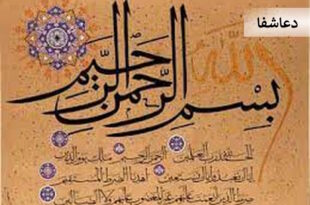 دعاشفا
الله
بسم الرحمن الرحیم
الحمد لله رب العالمین الرحمن الرحیم مالک یوم الدین
ایاک نعبد وایاک نستعین اهدنا الصراط المستقیم
صراط الذین انعمت علیهم غیر المغضوب علیهم ولا الضالین